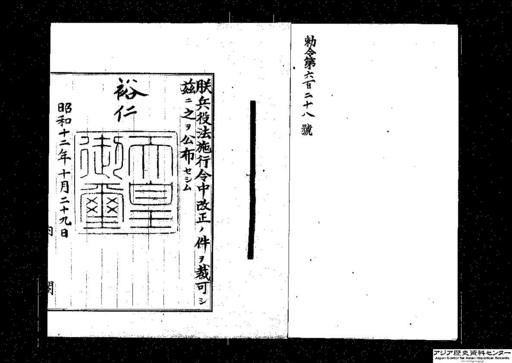 勅令第六百二十八號
朕兵役法施行令中改正ノ件ヲ裁可シ
茲ニ之ヲ公布セシム
裕仁
天皇
御璽
昭和十二年十月二十九日
内閣
アジア歴史資料センター
Japan Center for Asian Historical Records